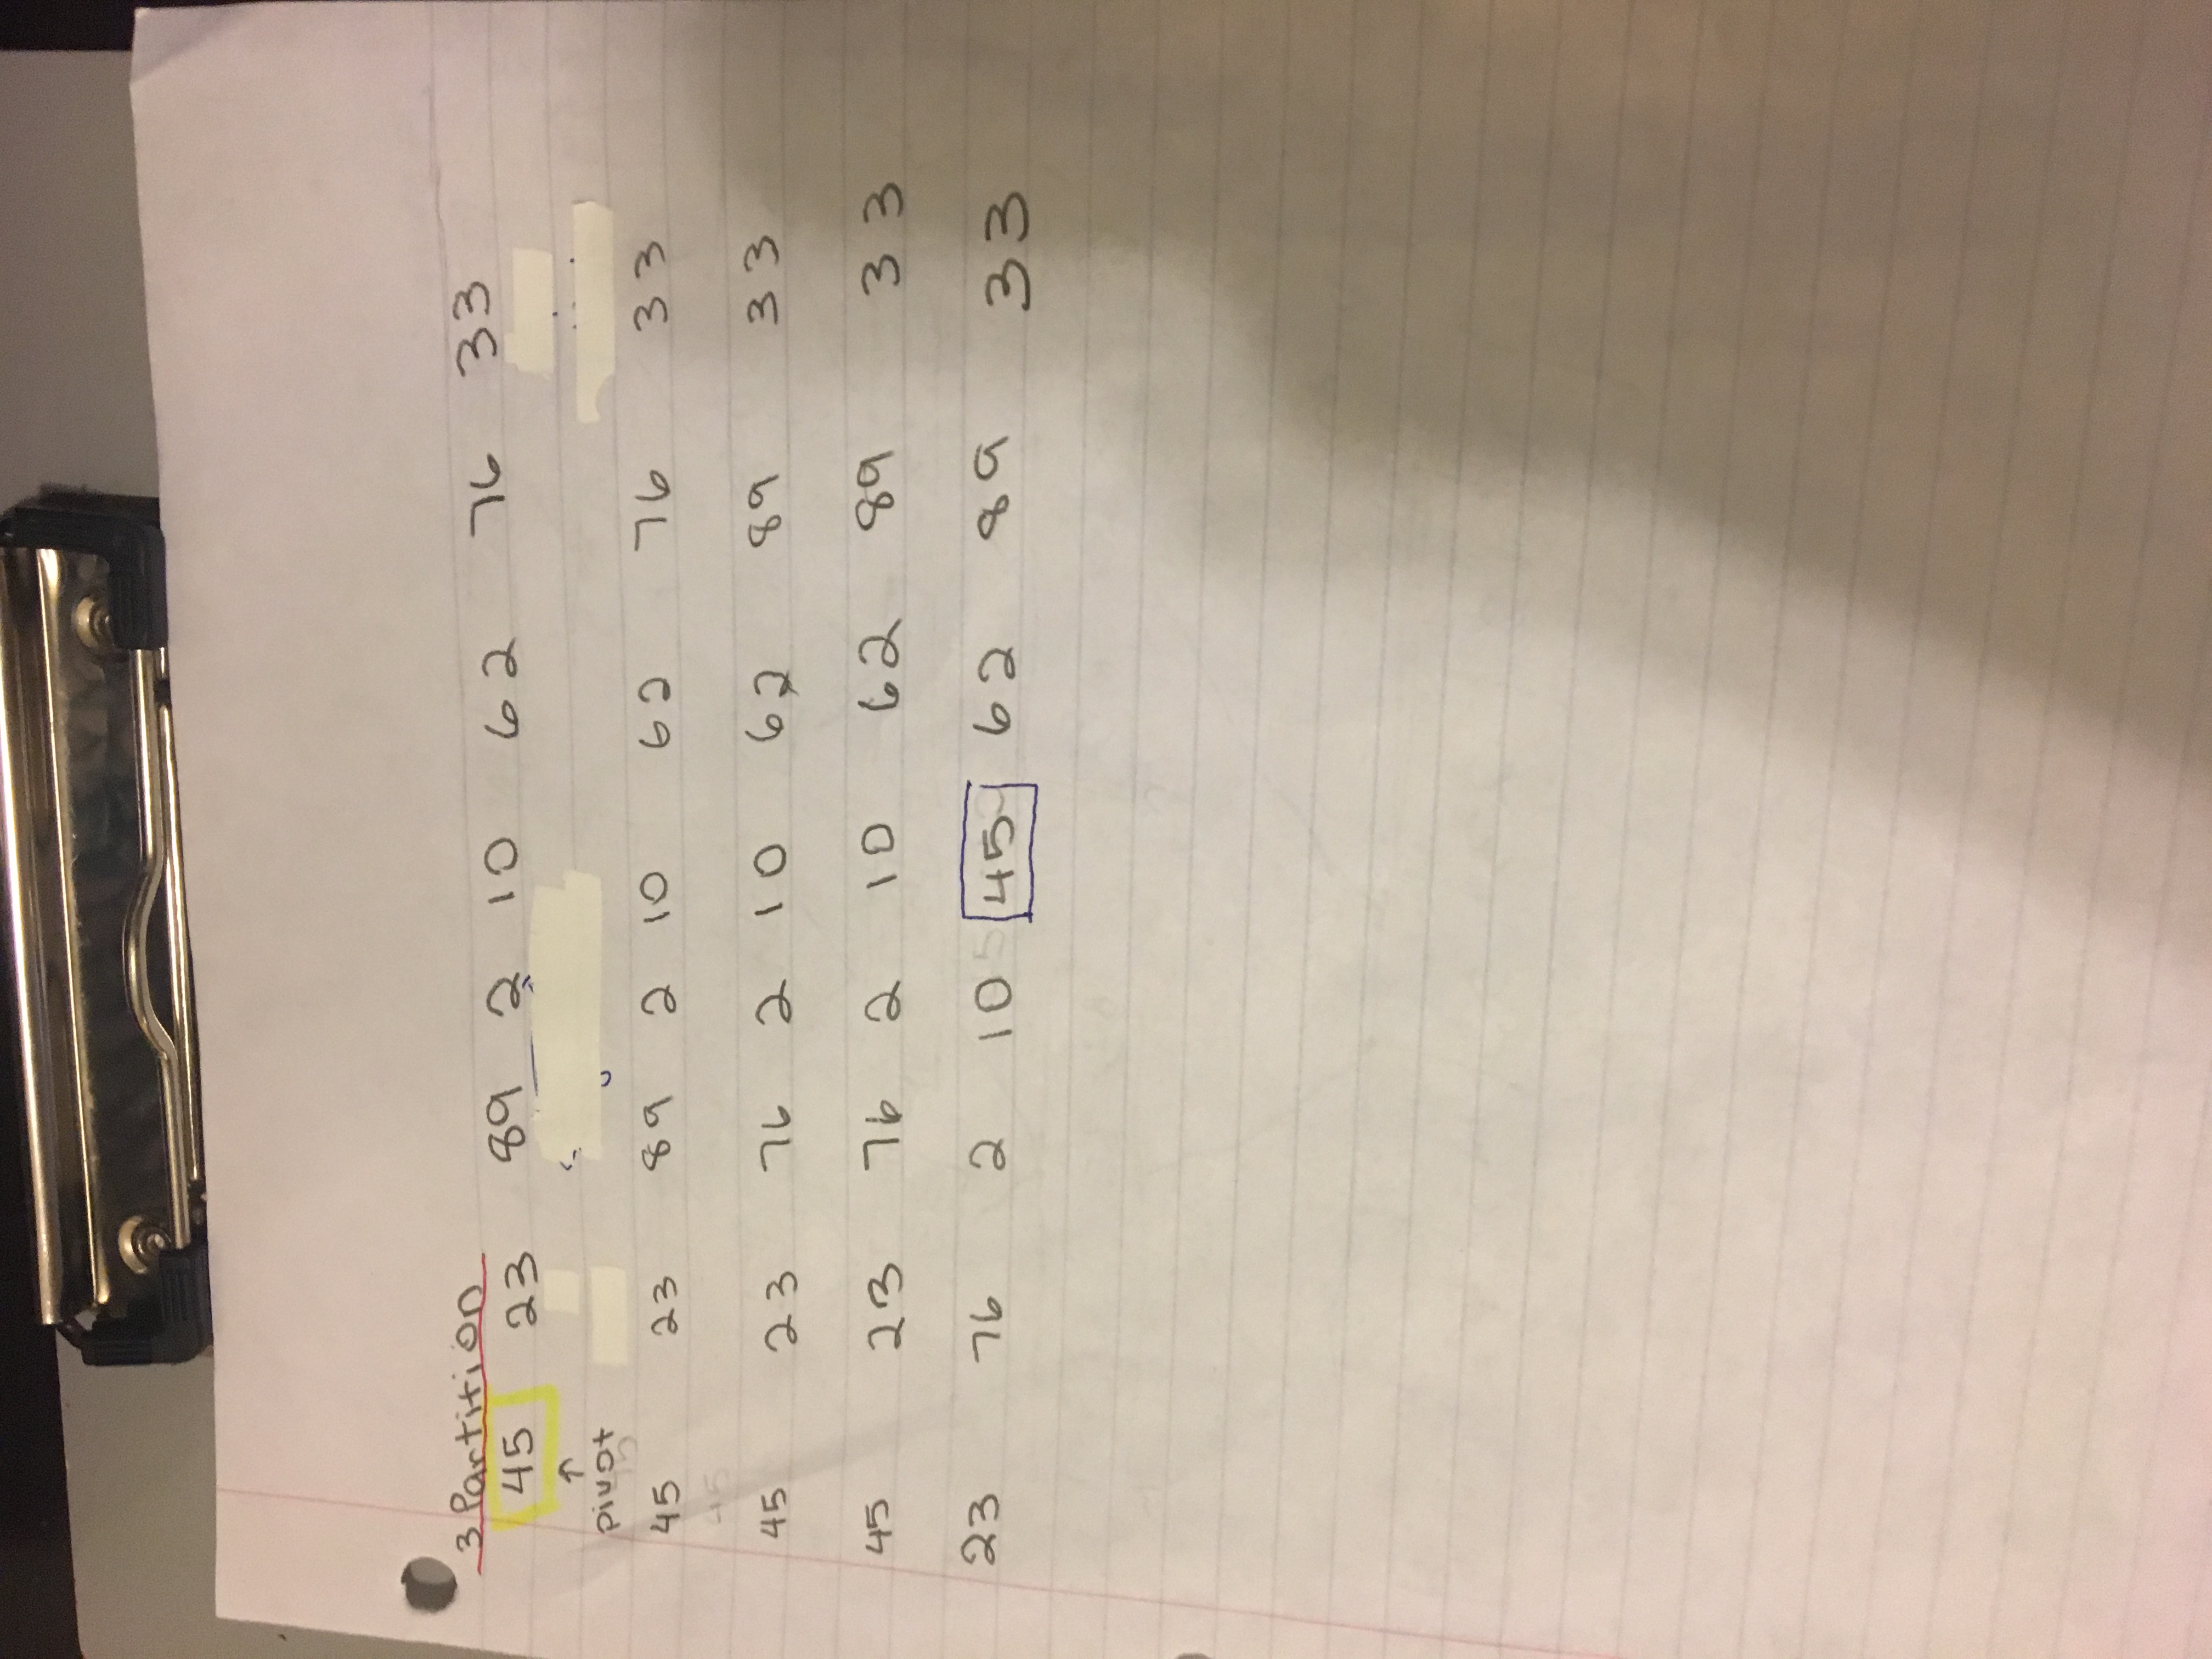 3 Partition
45 23 89 2 10 62 76 33
↑
pivot
45 23 89 2 10 62 76 33
45
45 23 76 2 10 62 89 33
45 23 76 2 10 62 89 33
23 76 2 10 45 62 89 33